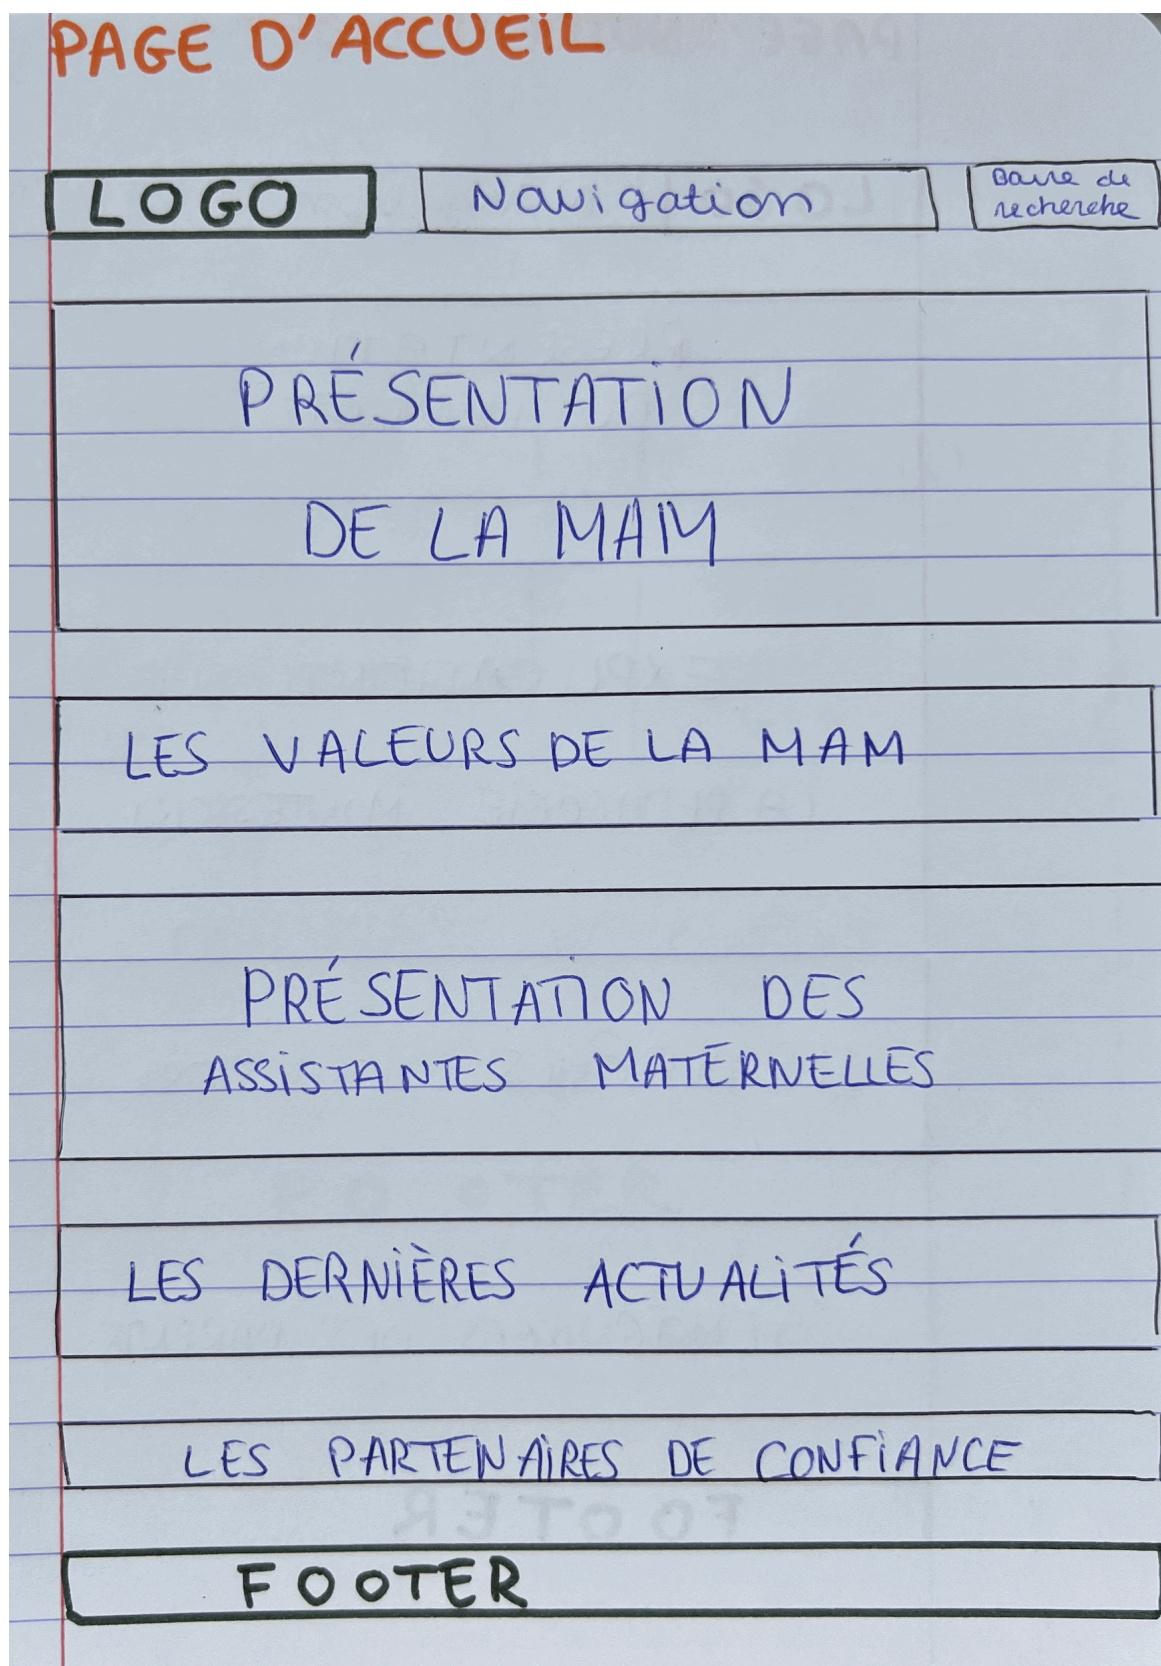 PAGE D'ACCUEIL
LOGO
Navigation
Barre de
recherche
PRÉSENTATION
DE LA MAM
LES VALEURS DE LA MAM
PRÉSENTATION DES
ASSISTANTES MATERNELLES
LES DERNIÈRES ACTUALITÉS
LES PARTENAIRES DE CONFIANCE
FOOTER